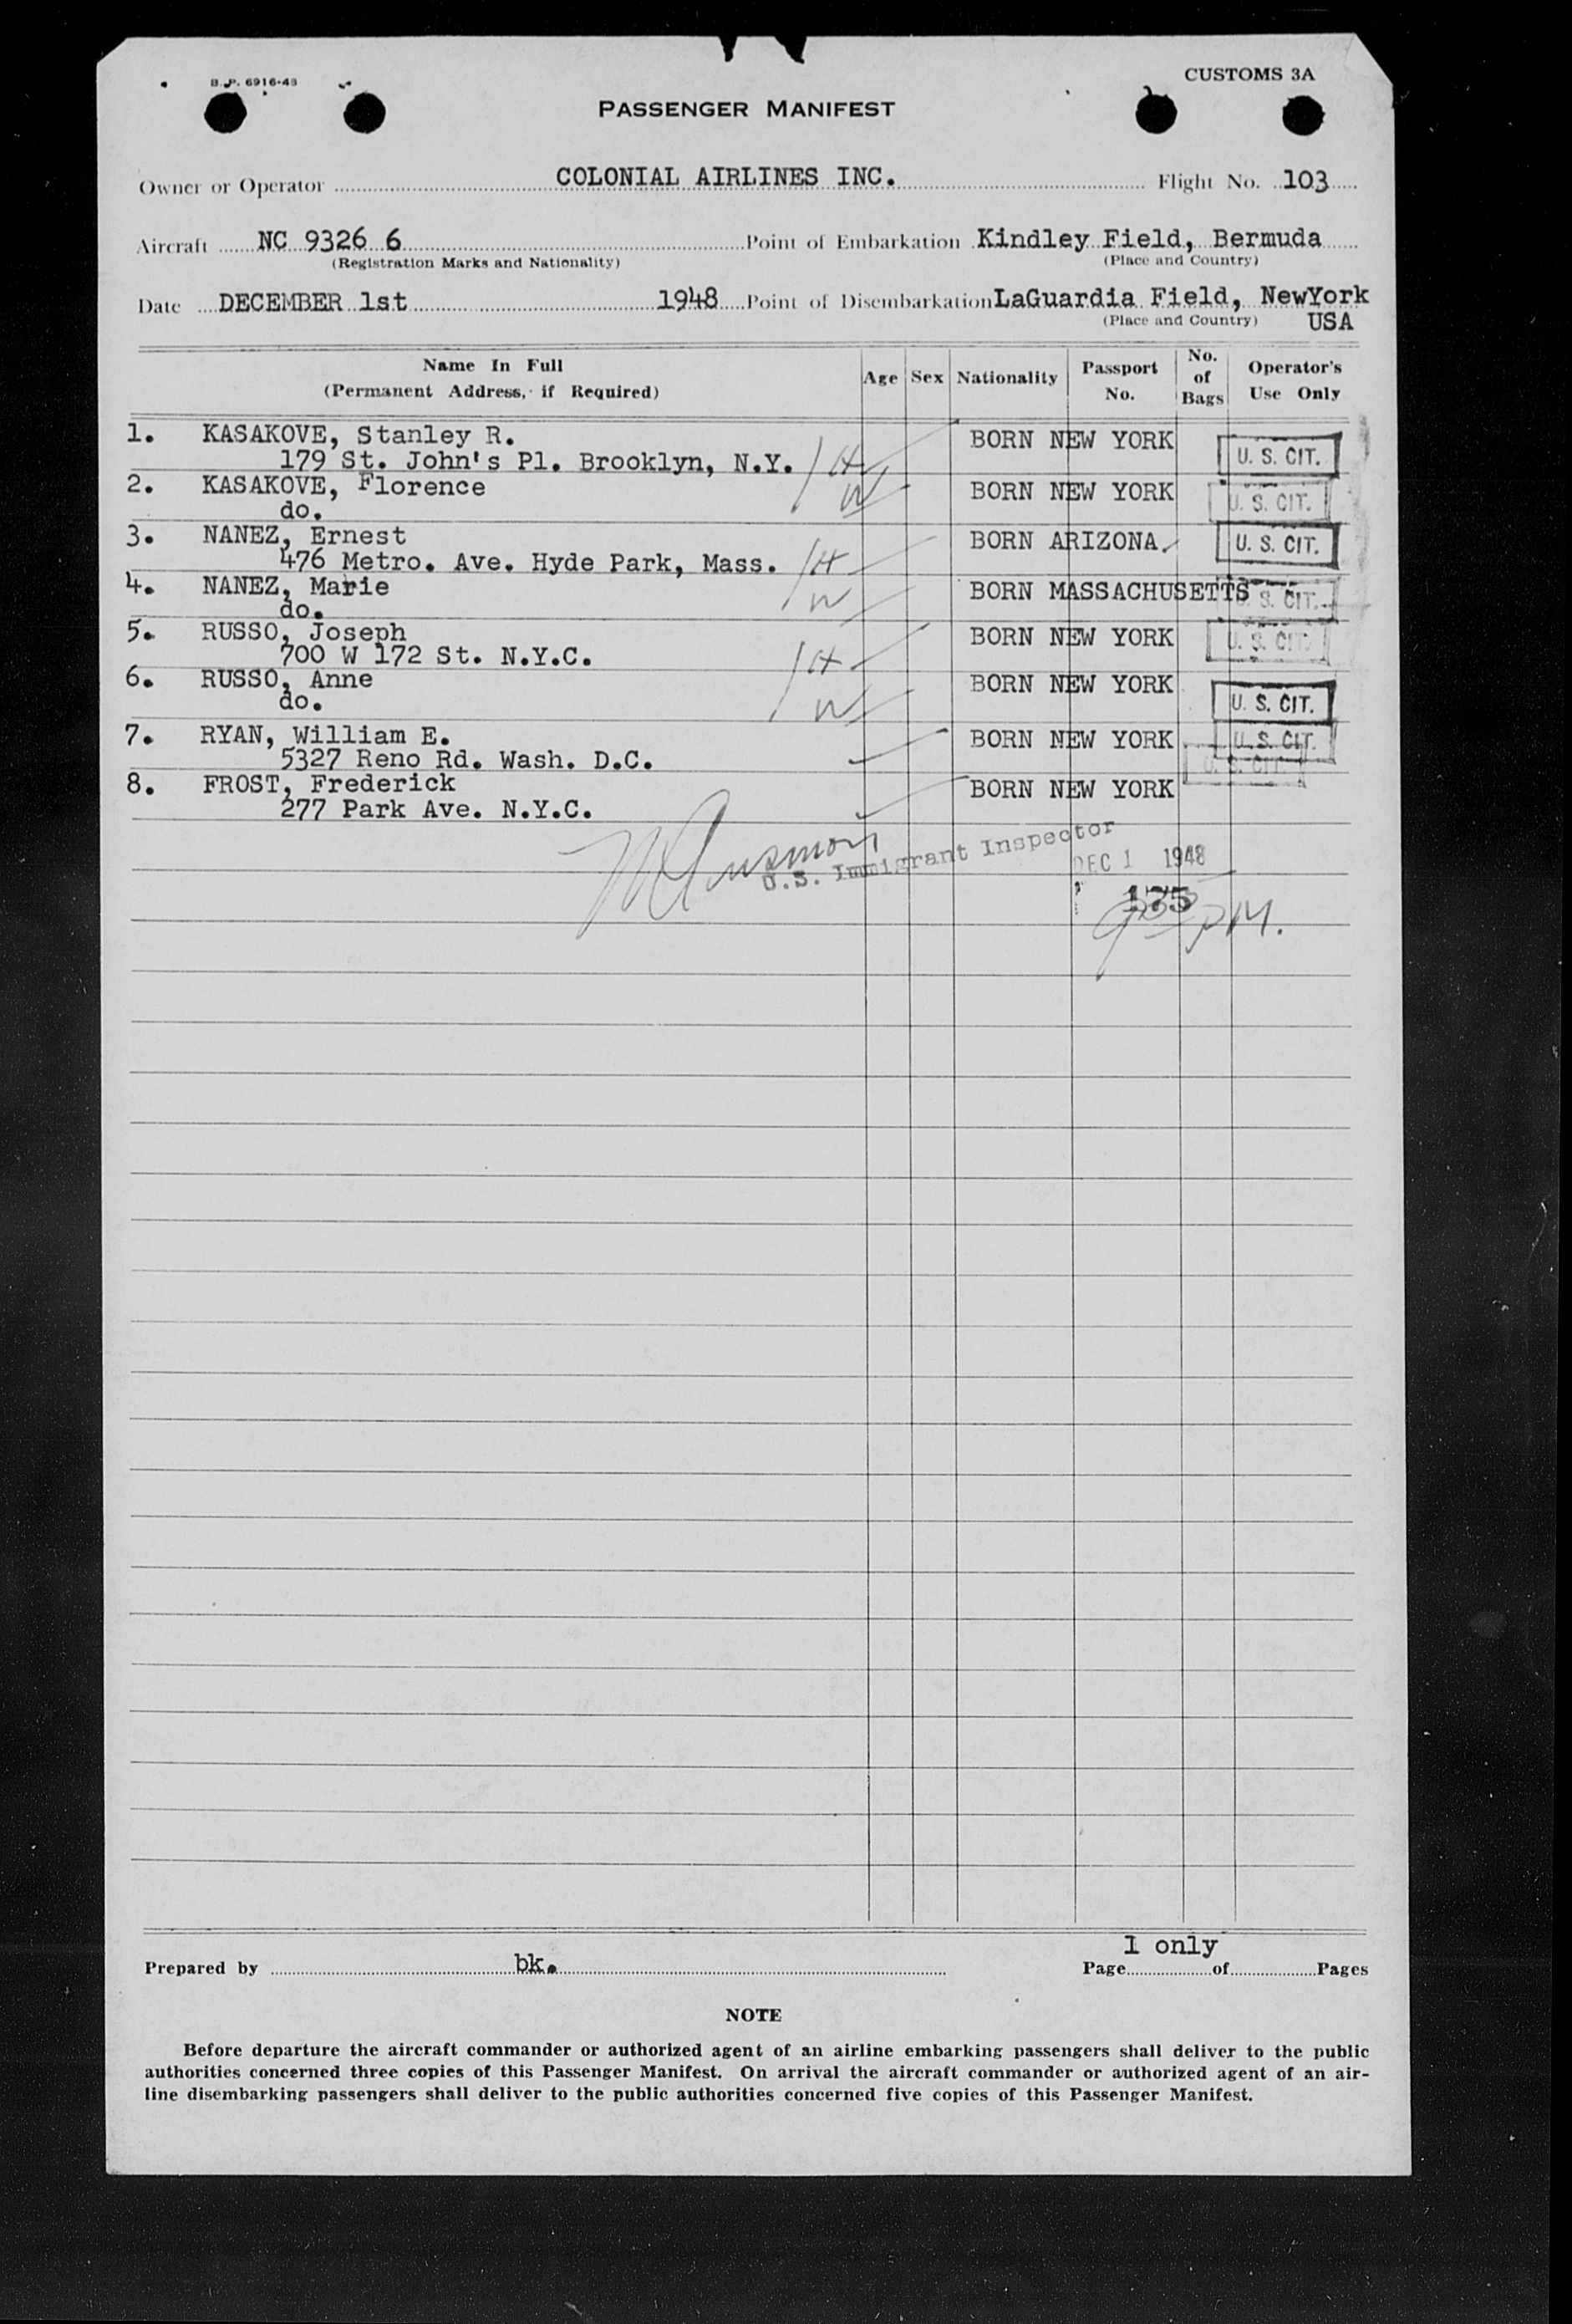 B. P. 6916-48
CUSTOMS 3A
PASSENGER MANIFEST
Owner or Operator COLONIAL AIRLINES INC. Flight No. 103
Aircraft NC 9326 6 Point of Embarkation Kindley Field, Bermuda
(Registration Marks and Nationality) (Place and Country)
Date DECEMBER 1st 1948 Point of Disembarkation LaGuardia Field, NewYork
(Place and Country) USA
Name In Full (Permanent Address, if Required) Age Sex Nationality Passport No. No. of Bags Operator's Use Only
1. KASAKOVE, Stanley R. BORN NEW YORK U. S. CIT.
179 St. John's Pl. Brooklyn, N.Y. H
2. KASAKOVE, Florence W BORN NEW YORK U. S. CIT.
do.
3. NANEZ, Ernest BORN ARIZONA. U. S. CIT.
476 Metro. Ave. Hyde Park, Mass. H
4. NANEZ, Marie W BORN MASSACHUSETTS U. S. CIT.
do.
5. RUSSO, Joseph BORN NEW YORK U. S. CIT.
700 W 172 St. N.Y.C. H
6. RUSSO, Anne BORN NEW YORK U. S. CIT.
do. W
7. RYAN, William E. BORN NEW YORK U. S. CIT.
5327 Reno Rd. Wash. D.C. U. S. CIT.
8. FROST, Frederick BORN NEW YORK
277 Park Ave. N.Y.C.
U.S. Immigrant Inspector
DEC 1 1948
175
PM.
1 only
Prepared by bk. Page of Pages
NOTE
Before departure the aircraft commander or authorized agent of an airline embarking passengers shall deliver to the public
authorities concerned three copies of this Passenger Manifest. On arrival the aircraft commander or authorized agent of an air-
line disembarking passengers shall deliver to the public authorities concerned five copies of this Passenger Manifest.